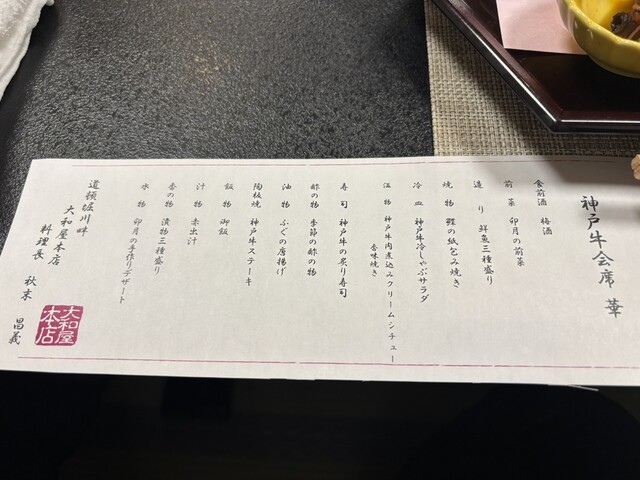 神戸牛会席 華
食前酒 梅酒
前菜 卯月の前菜
造り 鮮魚三種盛り
焼物 鰹の紙包み焼き
冷皿 神戸牛冷しゃぶサラダ
温物 神戸牛肉煮込みクリームシチュー
香味焼き
寿司 神戸牛の炙り寿司
酢の物 季節の酢の物
油物 ふぐの唐揚げ
陶板焼 神戸牛ステーキ
飯物 御飯
汁物 赤出汁
香の物 漬物三種盛り
水物 卯月の手作りデザート
道頓堀川畔
大和屋本店
料理長 秋末 昌義
大和屋
本店